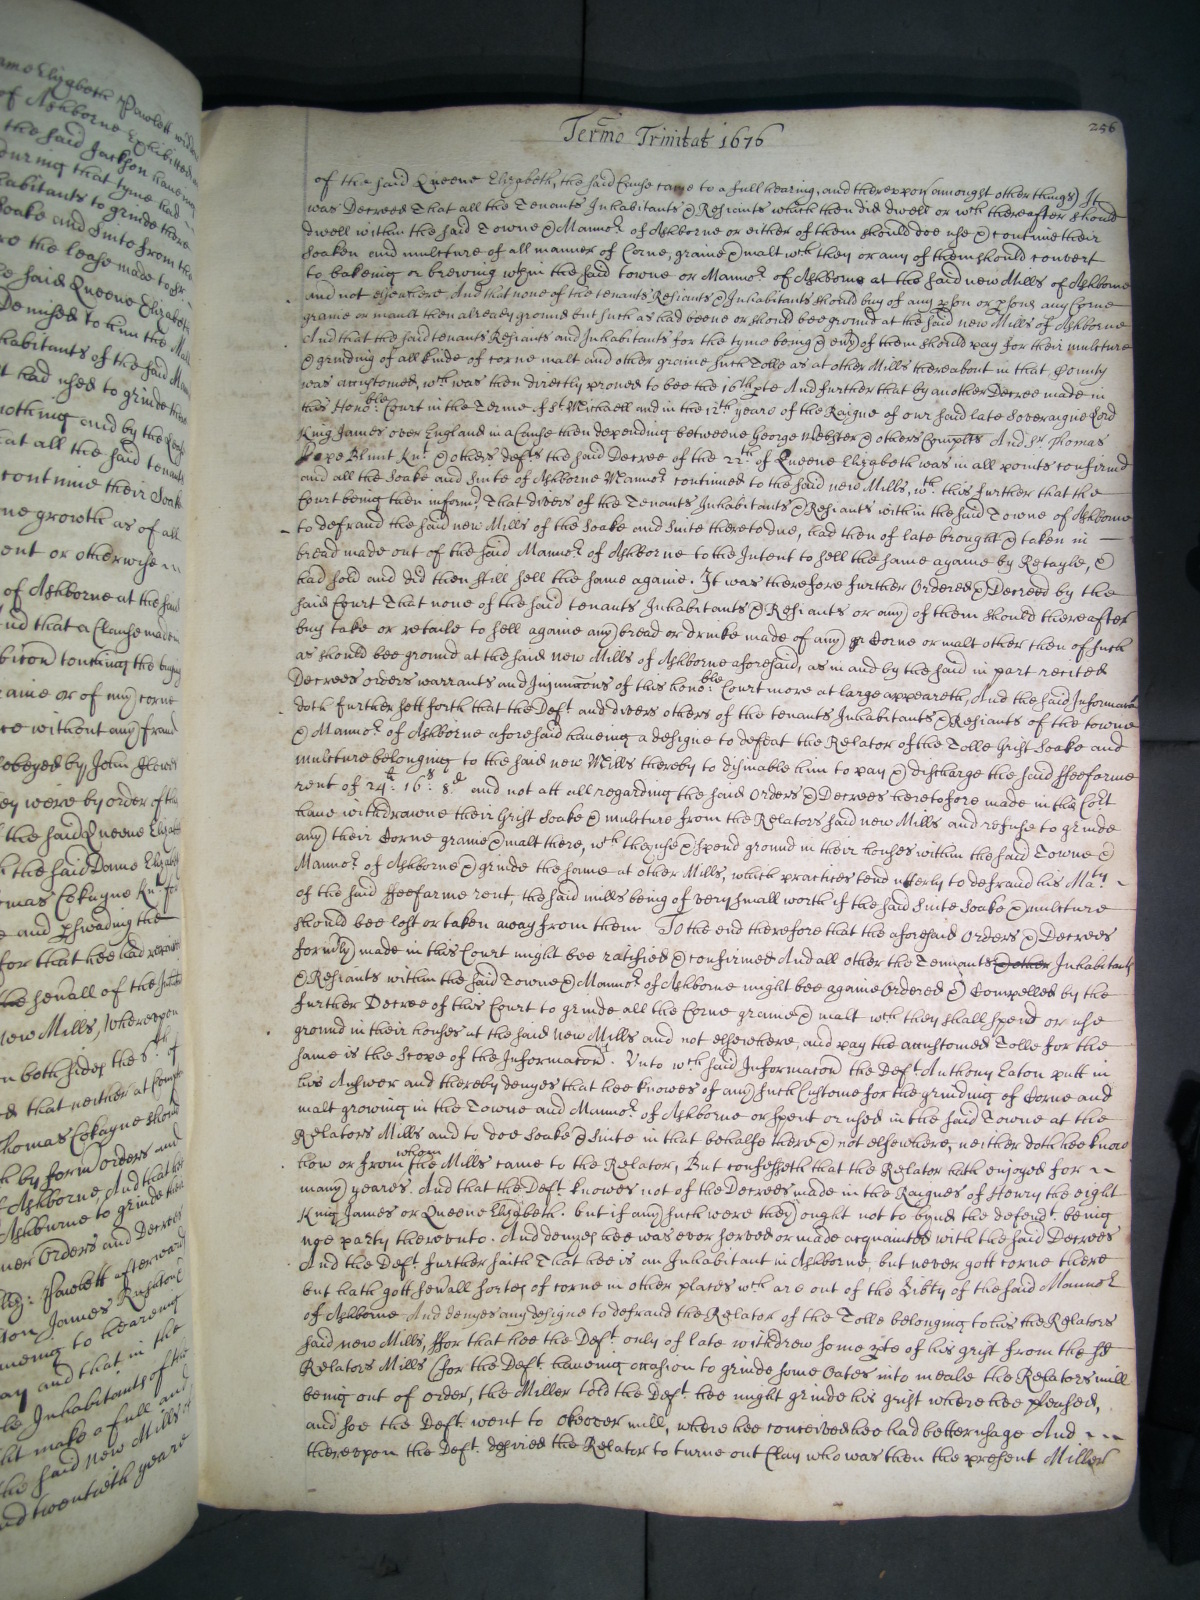 Termo Trinitat 1676
256
of the said Queene Elizabeth, the said Cause came to a full hearing, and thereupon (amongst other things) It
was Decreed That all the Tenants Inhabitants & Resiants which then did dwell or wch thereafter should
dwell within the said Towne & Mannor of Ashborne or either of them should doe use & continue their
Soaken and mulcture of all manner of Corne, graine & malt wch they or any of them should convert
to bakeing or brewing wthin the said towne or Mannor of Ashborne at the said new Mills of Ashborne
and not elsewhere And that none of the tenants Resiants & Inhabitants should buy of any pson or psons any Corne
graine or mault then already ground but such as had beene or should bee ground at the said new Mills of Ashborne
And that the said tenants Resiants and Inhabitants for the tyme being & evy of them should pay for their mulcture
& grinding of all kinde of corne malt and other graine such Tolle as at other Mills thereabout in that County
was accustomed, wch was then directly proved to bee the 16th pte And further that by another Decree made in
this Honoble Court in the Terme of St Michaell and in the 12th yeare of the Raigne of our said late Soveraigne Lord
King James over England in a Cause then depending betweene George Webster & others Complts And Sr Thomas
Pope Blunt Knt & others defts the said Decree of the 22th of Queene Elizabeth was in all points confirmd
and all the Soake and Suite of Ashborne Mannor continued to the said new Mills, wth this further that the
Court being then informd, That divers of the Tenants Inhabitants & Resiants within the said Towne of Ashborne
to defraud the said new Mills of the Soake and Suite thereto due, had then of late brought & taken in
bread made out of the said Mannor of Ashborne to the Intent to sell the same againe by Retayle, &
had sold and did then still sell the same againe. It was therefore further Ordered & Decreed by the
said Court That none of the said tenants Inhabitants & Resiants or any of them should thereafter
buy take or retaile to sell againe any bread or drinke made of any Corne or malt other then of such
as should bee ground at the said new Mills of Ashborne aforesaid, as in and by the said in part recited
Decrees orders warrants and Injunccons of this honoble Court more at large appeareth, And the said Informacon
doth further sett forth that the Deft and divers others of the tenants Inhabitants & Resiants of the towne
& Mannor of Ashborne aforesaid haveing a designe to defeat the Relator of the Tolle Grist Soake and
mulcture belonging to the said new Mills thereby to disinable him to pay & discharge the said ffeefarme
rent of 24li: 16s 8d and not att all regarding the said Orders & Decrees heretofore made in this Cort
have withdrawne their Grist Soake & mulcture from the Relators said new Mills and refuse to grinde
any their Corne graine & malt there, wch they use & spend ground in their houses within the said Towne &
Mannor of Ashborne & grinde the same at other Mills, which practices tend utterly to defraud his Maty
of the said ffeefarme rent, the said mills being of very small worth if the said Suite Soake & mulcture
should bee lost or taken away from them To the end therefore that the aforesaid Orders & Decrees
formly made in this Court might bee ratified & confirmed And all other the Tennants & other Inhabitants
& Resiants within the said Towne & Mannor of Ashborne might bee againe Ordered & Compelled by the
further Decree of this Court to grinde all the Corne graine & malt wch they shall spend or use
ground in their houses at the said New Mills and not elsewhere, and pay the accustomed Tolle for the
same is the Scope of the Informacon. Unto wch said Informacon the Deft Anthony Eaton putt in
his Answer and thereby denyes that hee knowes of any such Custome for the grinding of Corne and
malt growing in the Towne and Mannor of Ashborne or spent or used in the said Towne at the
Relators Mills and to doe Soake & Suite in that behalfe there & not elsewhere, neither doth hee know
how or from whom the Mills came to the Relator, But confesseth that the Relator hath enjoyed for
many yeares. And that the Deft knowes not of the Decrees made in the Raignes of Henry the eight
King James or Queene Elizabeth. but if any such were they ought not to bynd the defendt being
noe party thereunto. And denyes hee was ever served or made acquainted with the said Decrees
And the Deft further saith That hee is an Inhabitant in Ashborne, but never gott corne there
but hath gott sevall sortes of corne in other places wch are out of the Libty of the said Mannor
of Ashborne And denyes any designe to defraud the Relator of the Tolle belonging to his the Relators
said new Mills, ffor that hee the Deft only of late withdrew some pte of his grist from the sd
Relators Mills (for the Deft haveing occasion to grinde some Oates into meale the Relators mill
being out of order, the Miller told the Deft hee might grinde his grist where hee pleased,
and soe the Deft went to Okeover mill, where hee conceived hee had better usage And
thereupon the Deft desired the Relator to turne out Clay who was then the present Miller